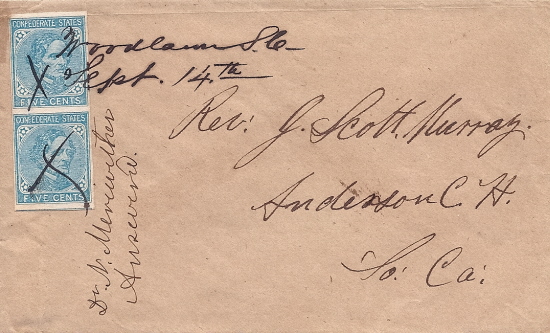 CONFEDERATE STATES
FIVE CENTS
CONFEDERATE STATES
FIVE CENTS
Woodlawn S.C.
Sept. 14.th
Rev: J. Scott. Murray.
Anderson C. H.
So: Ca:
Dr. N. Meriwether
Answered.